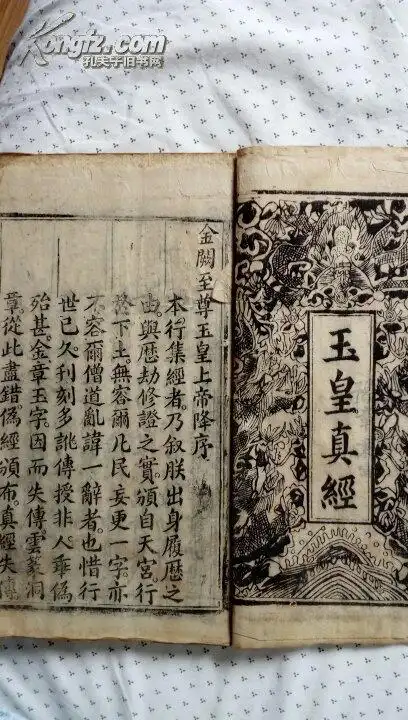 Kongfz.com
孔夫子旧书网
玉皇真經
金闕至尊玉皇上帝降序
本行集經者。乃叙朕出身履歷之
由。與歷劫修證之實。頒自天宮。行
於下土。無容爾凡民妄更一字。亦
不容爾僧道亂諱一辭者也。惜行
世已久。刋刻多訛。傳授非人。
殆甚。金章玉字。因而失傳。雲篆洞
章。從此盡錯。僞經頒布。真經失傳